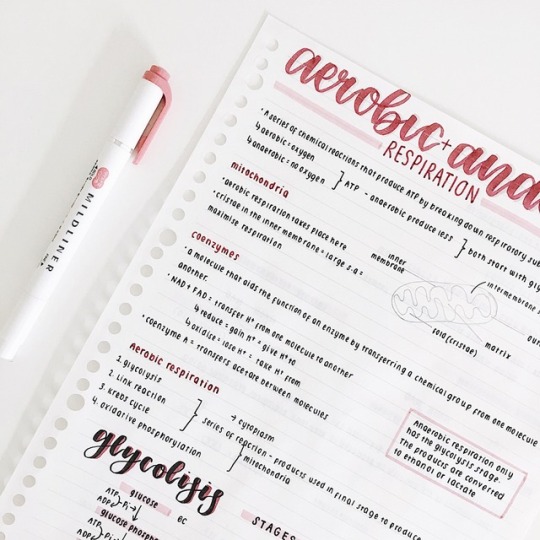 MILDLINER
aerobic + ana
RESPIRATION
• A series of chemical reactions that produce ATP by breaking down respiratory sub
↳ aerobic = oxygen
↳ anaerobic = no oxygen } ATP - anaerobic produce less } both start with gly
mitochondria
• aerobic respiration takes place here
• cristae in the inner membrane = large s.a =
maximise respiration
inner
membrane
intermembrane s
matrix
fold (cristae)
coenzymes
• a molecule that aids the function of an enzyme by transferring a chemical group from one molecule
another.
• NAD + FAD = transfer H⁺ from one molecule to another
↳ reduce = gain H⁺ = give H⁺ to
↳ oxidise = lose H⁺ = take H⁺ from
• coenzyme A = transfers acetate between molecules
Aerobic respiration
1. glycolysis → cytoplasm
2. Link reaction
3. krebs cycle
4. oxidative phosphorylation } mitochondria
series of reaction - products used in final stage to produce
Anaerobic respiration only
has the glycolysis stage.
The products are converted
to ethanol or lactate
glycolisis
STAGES
glucose 6C
ATP
ADP Pi
glucose phosph
ATP
ADP Pi